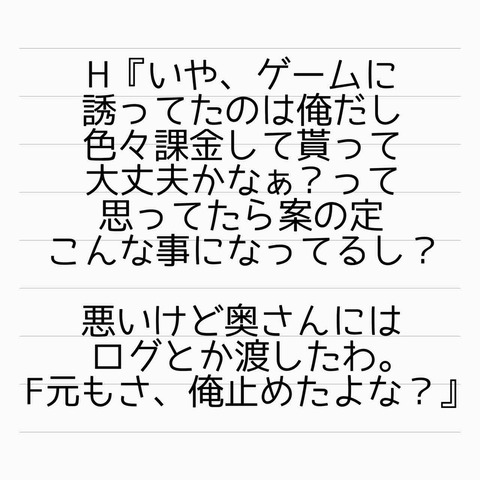 H『いや、ゲームに
誘ってたのは俺だし
色々課金して貰って
大丈夫かなぁ？って
思ってたら案の定
こんな事になってるし？
悪いけど奥さんには
ログとか渡したわ。
F元もさ、俺止めたよな？』